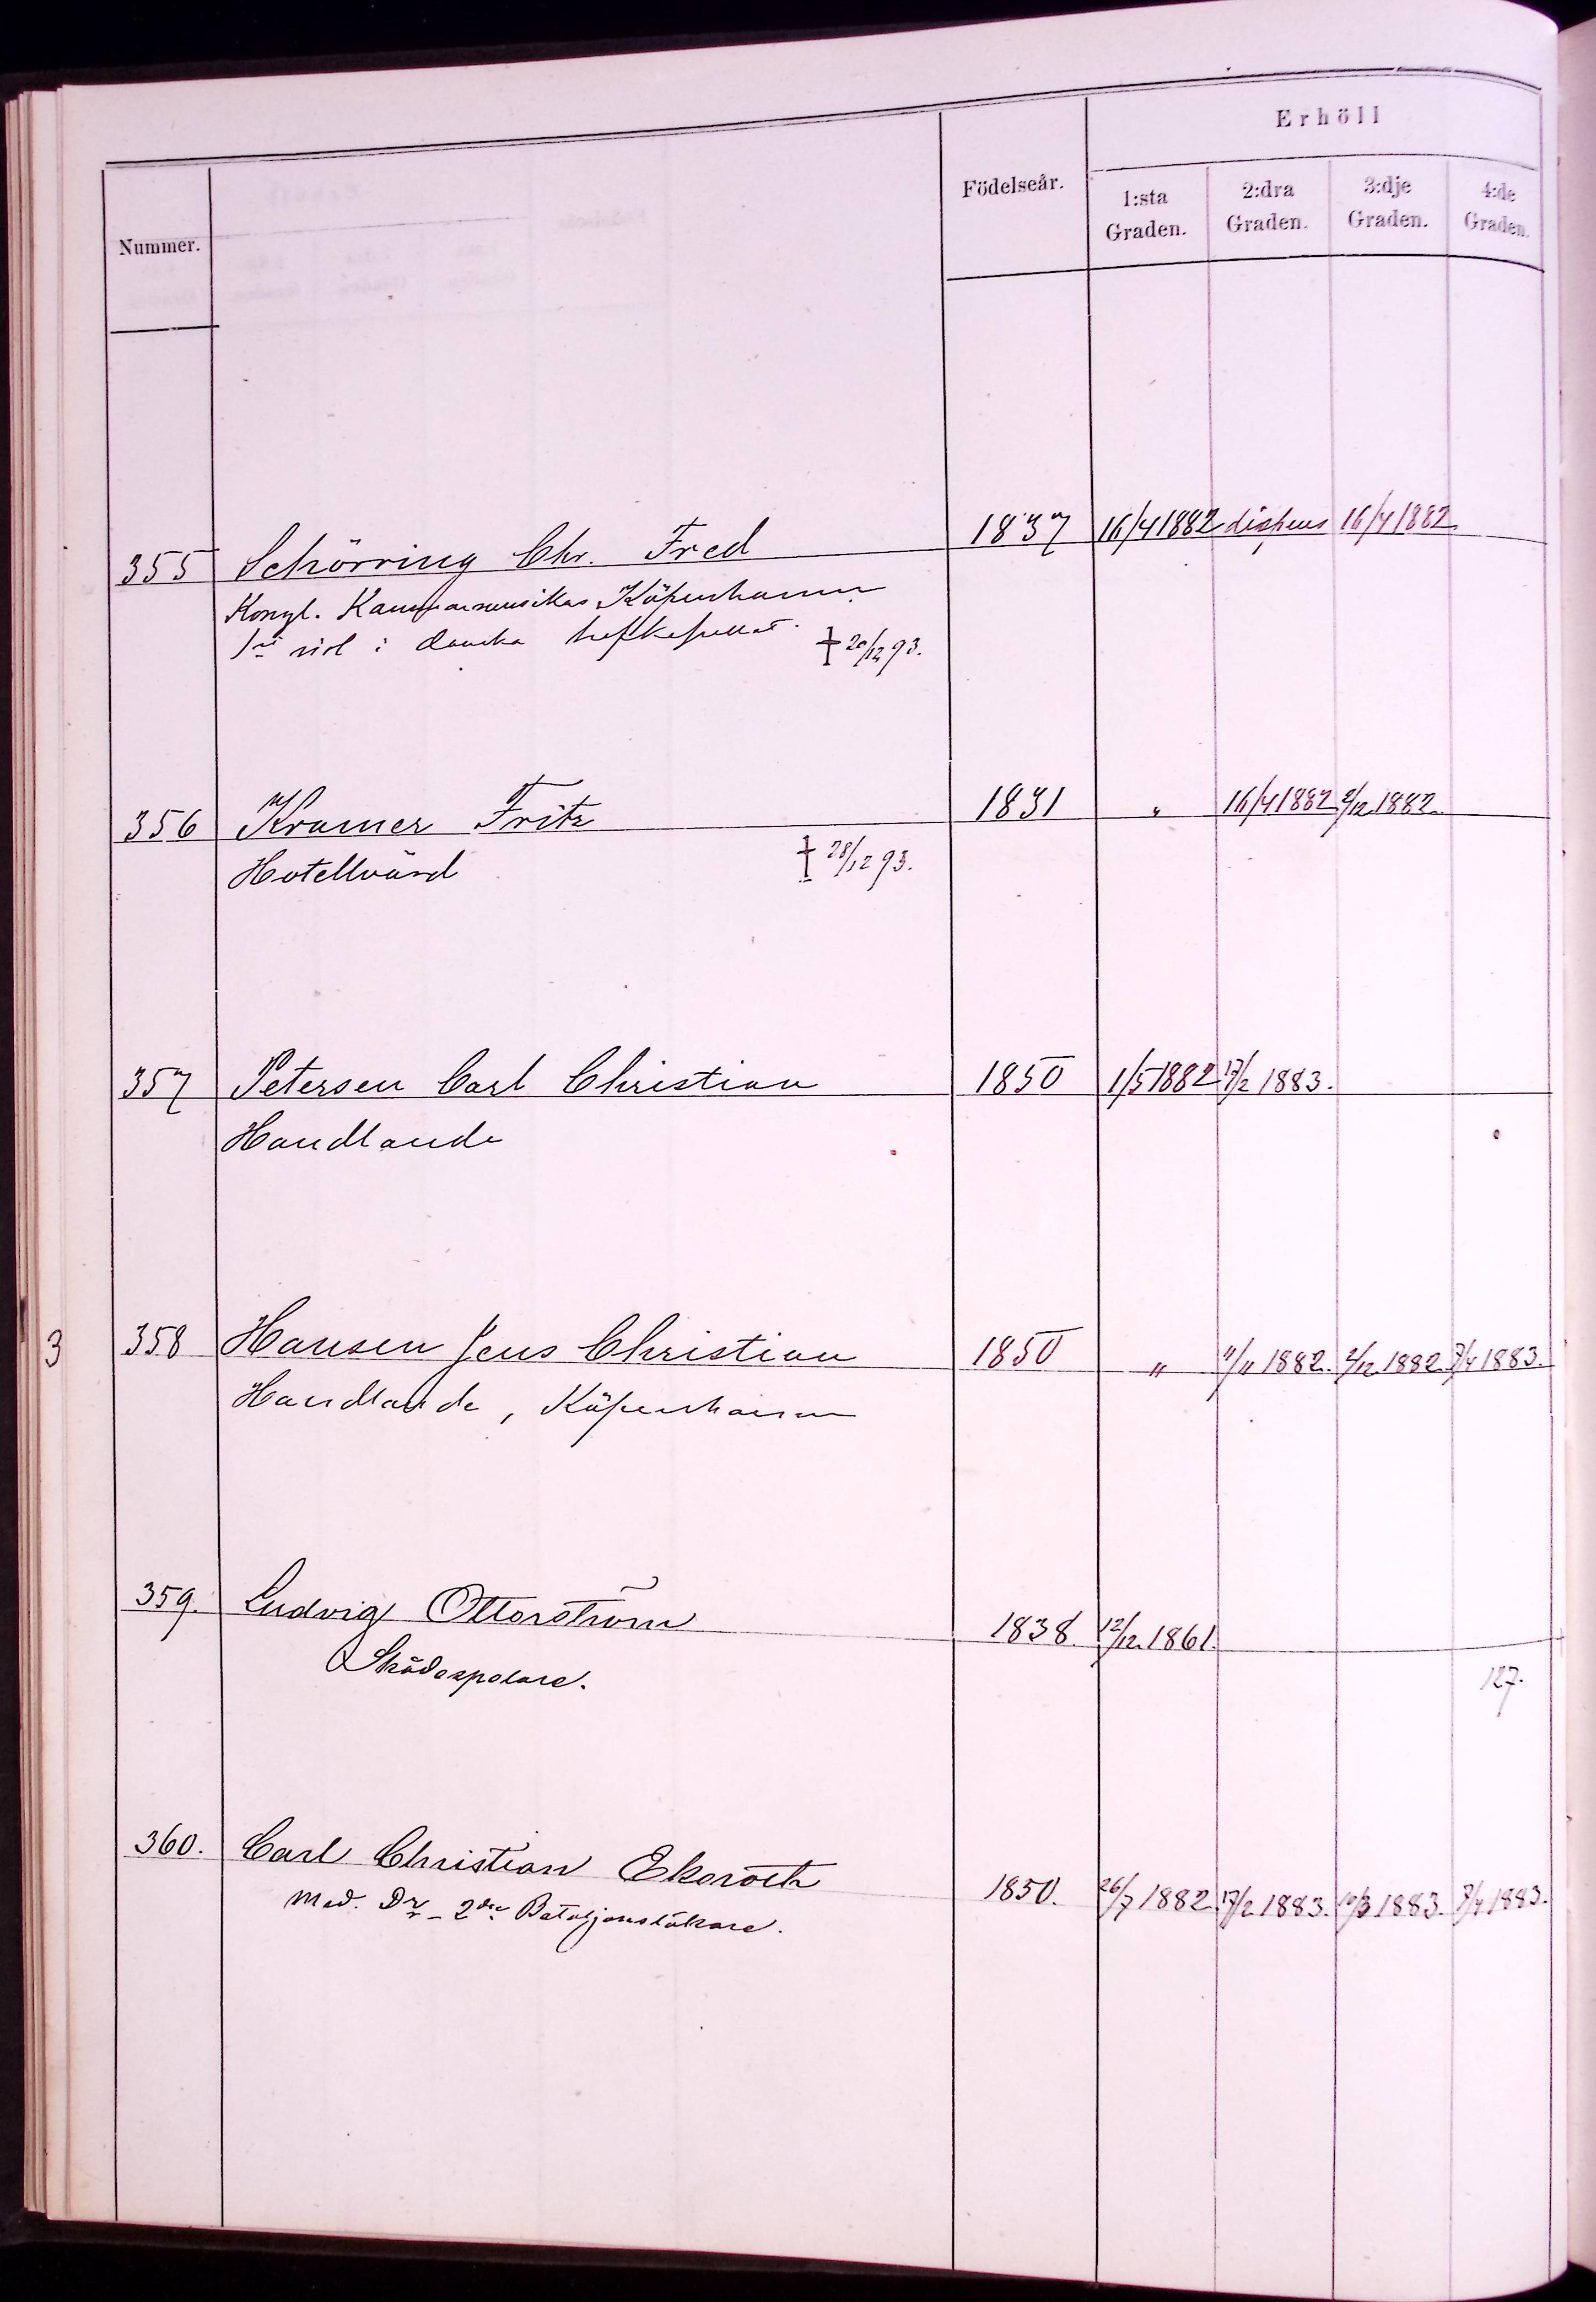 Erhöll
Nummer. Födelseår. 1:sta Graden. 2:dra Graden. 3:dje Graden. 4:de Graden.
355 Schörring Chr. Fred 1837 16/4 1882 dispens 16/4 1882
Kongl. Kammarmusikus Köpenhamn
1ste viol i danska hofkapellet. † 20/12 93.
356 Kramer Fritz 1831 " 16/4 1882 2/12 1882.
Hotellvärd † 28/12 93.
357 Petersen Carl Christian 1850 1/5 1882 17/2 1883.
Handlande
3 358 Hansen Jens Christian 1850 " 11/11 1882. 2/12 1882. 7/4 1883.
Handlande, Köpenhamn
359. Ludvig Ottorström 1838. 12/12 1861.
Skådespelare. 127.
360. Carl Christian Ekeroth 1850. 26/7 1882. 17/2 1883. 10/3 1883. 7/4 1883.
Med. Dr - 2dre Bataljonsläkare.